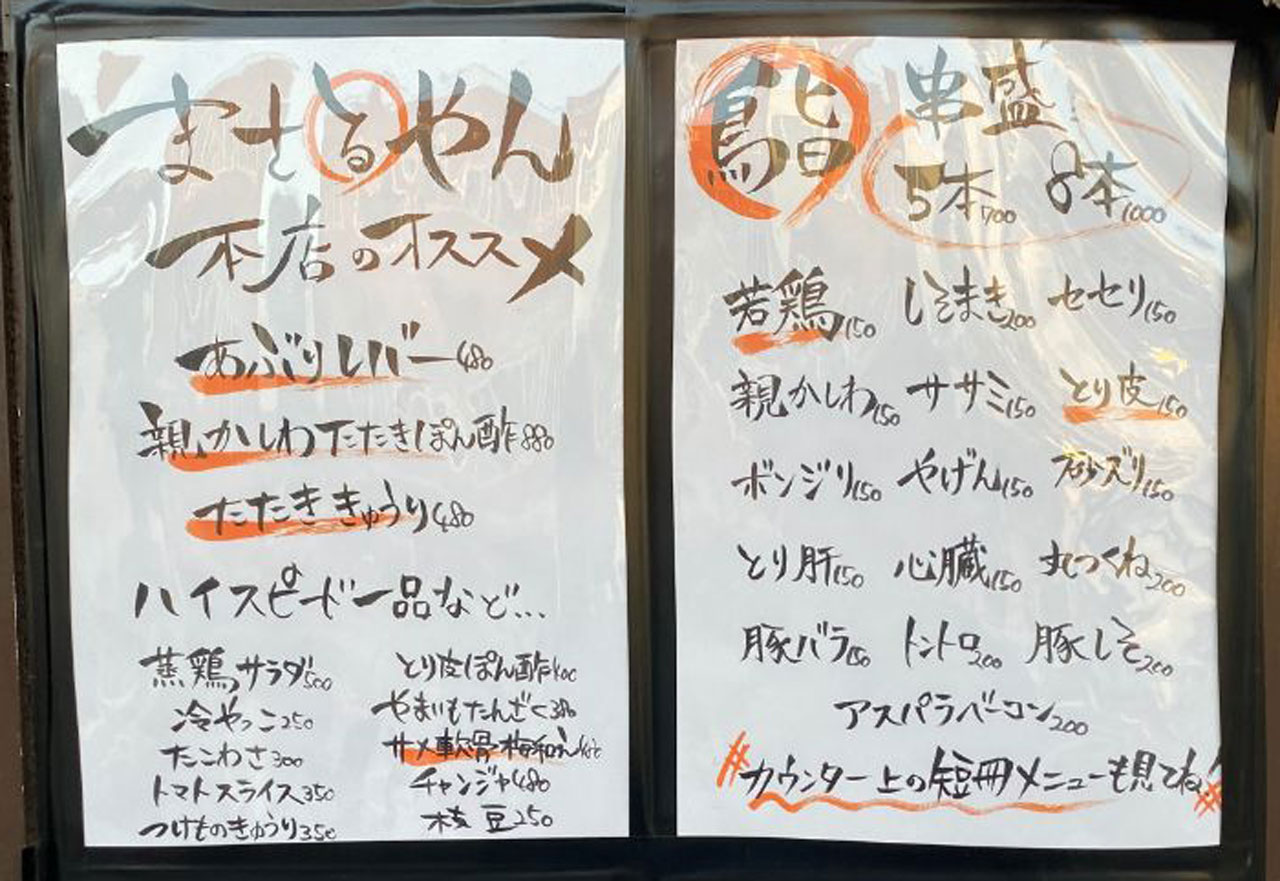 まさるやん
本店のオススメ
あぶりレバー480
親かしわたたきぽん酢880
たたききゅうり480
ハイスピード一品など...
蒸鶏サラダ500 とり皮ぽん酢400
冷やっこ250 やまいもたんざく380
たこわさ300 サメ軟骨梅和え
トマトスライス350 チャンジャ480
つけものきゅうり350 枝豆250
鳥旨 串盛
5本700 8本1000
若鶏150 しそまき200 セセリ150
親かしわ150 ササミ150 とり皮150
ボンジリ150 やげん150 砂ズリ150
とり肝150 心臓150 丸つくね200
豚バラ150 トントロ200 豚しそ200
アスパラベーコン200
カウンター上の短冊メニューも見てね!